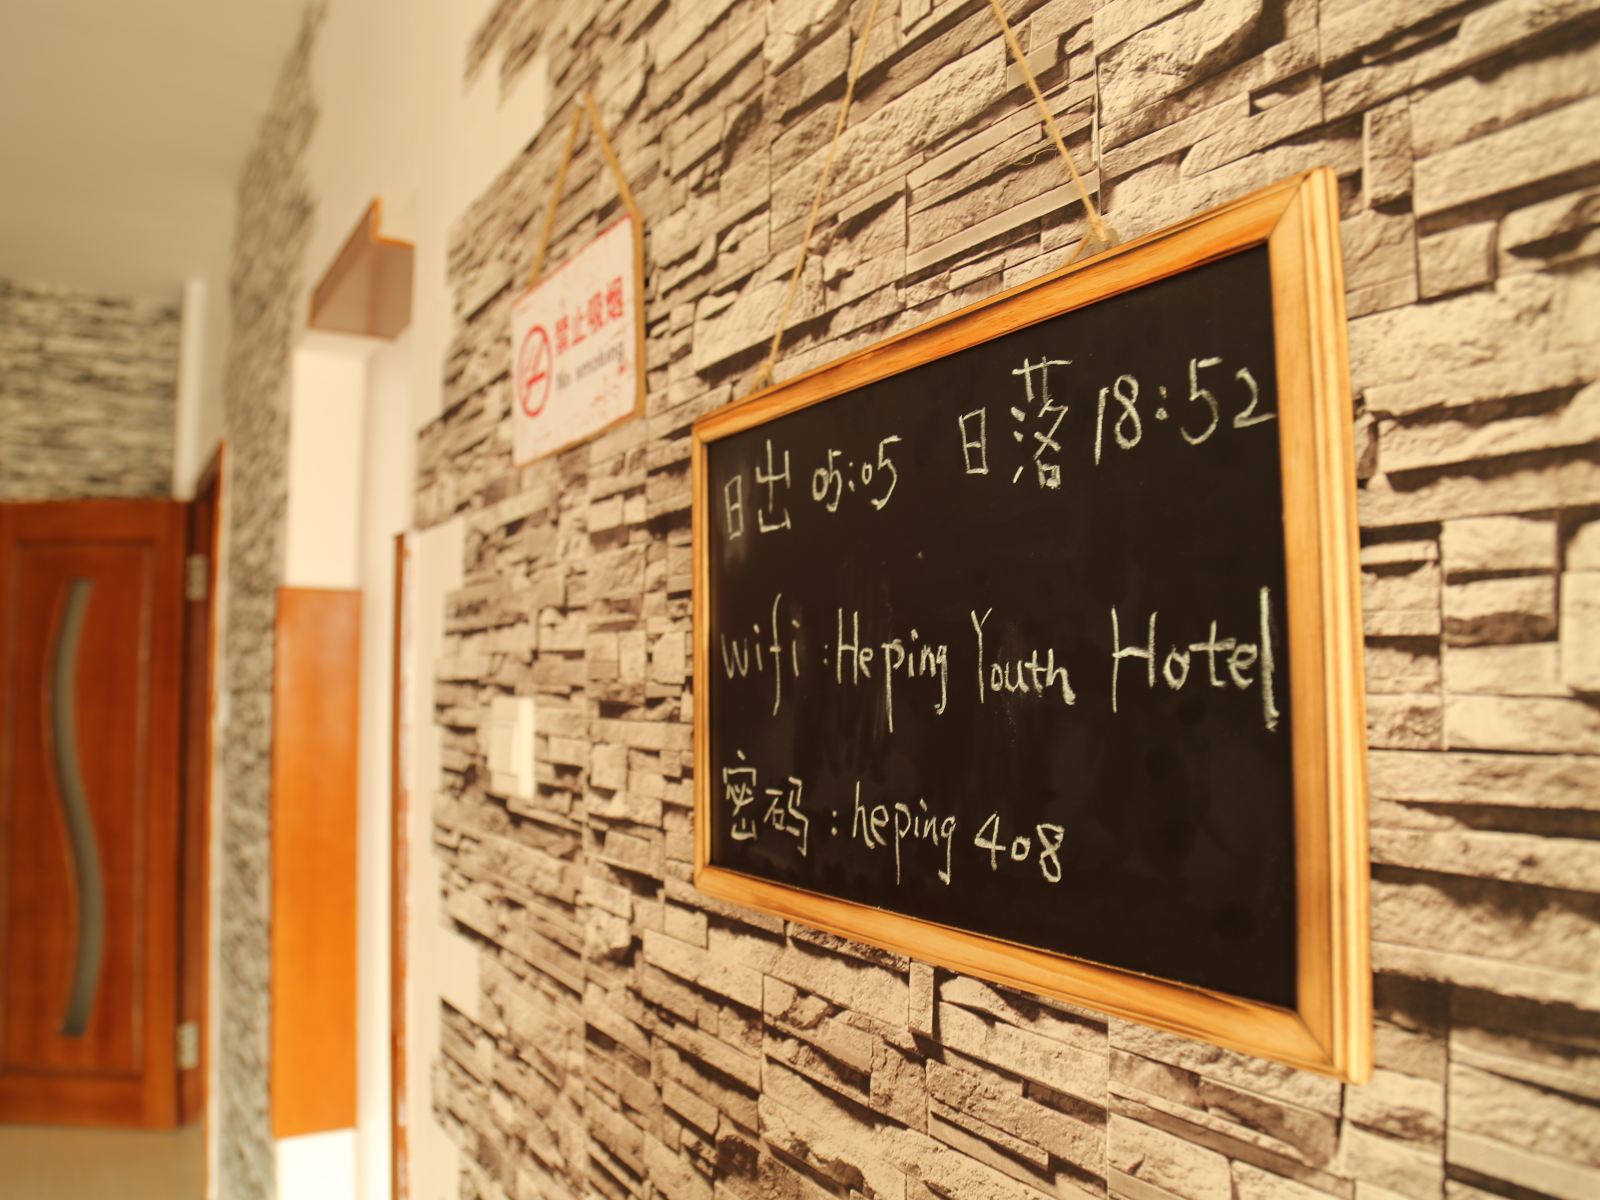 禁止吸烟
No smoking
日出 05:05 日落 18:52
Wifi : Heping Youth Hotel
密码 : heping 408